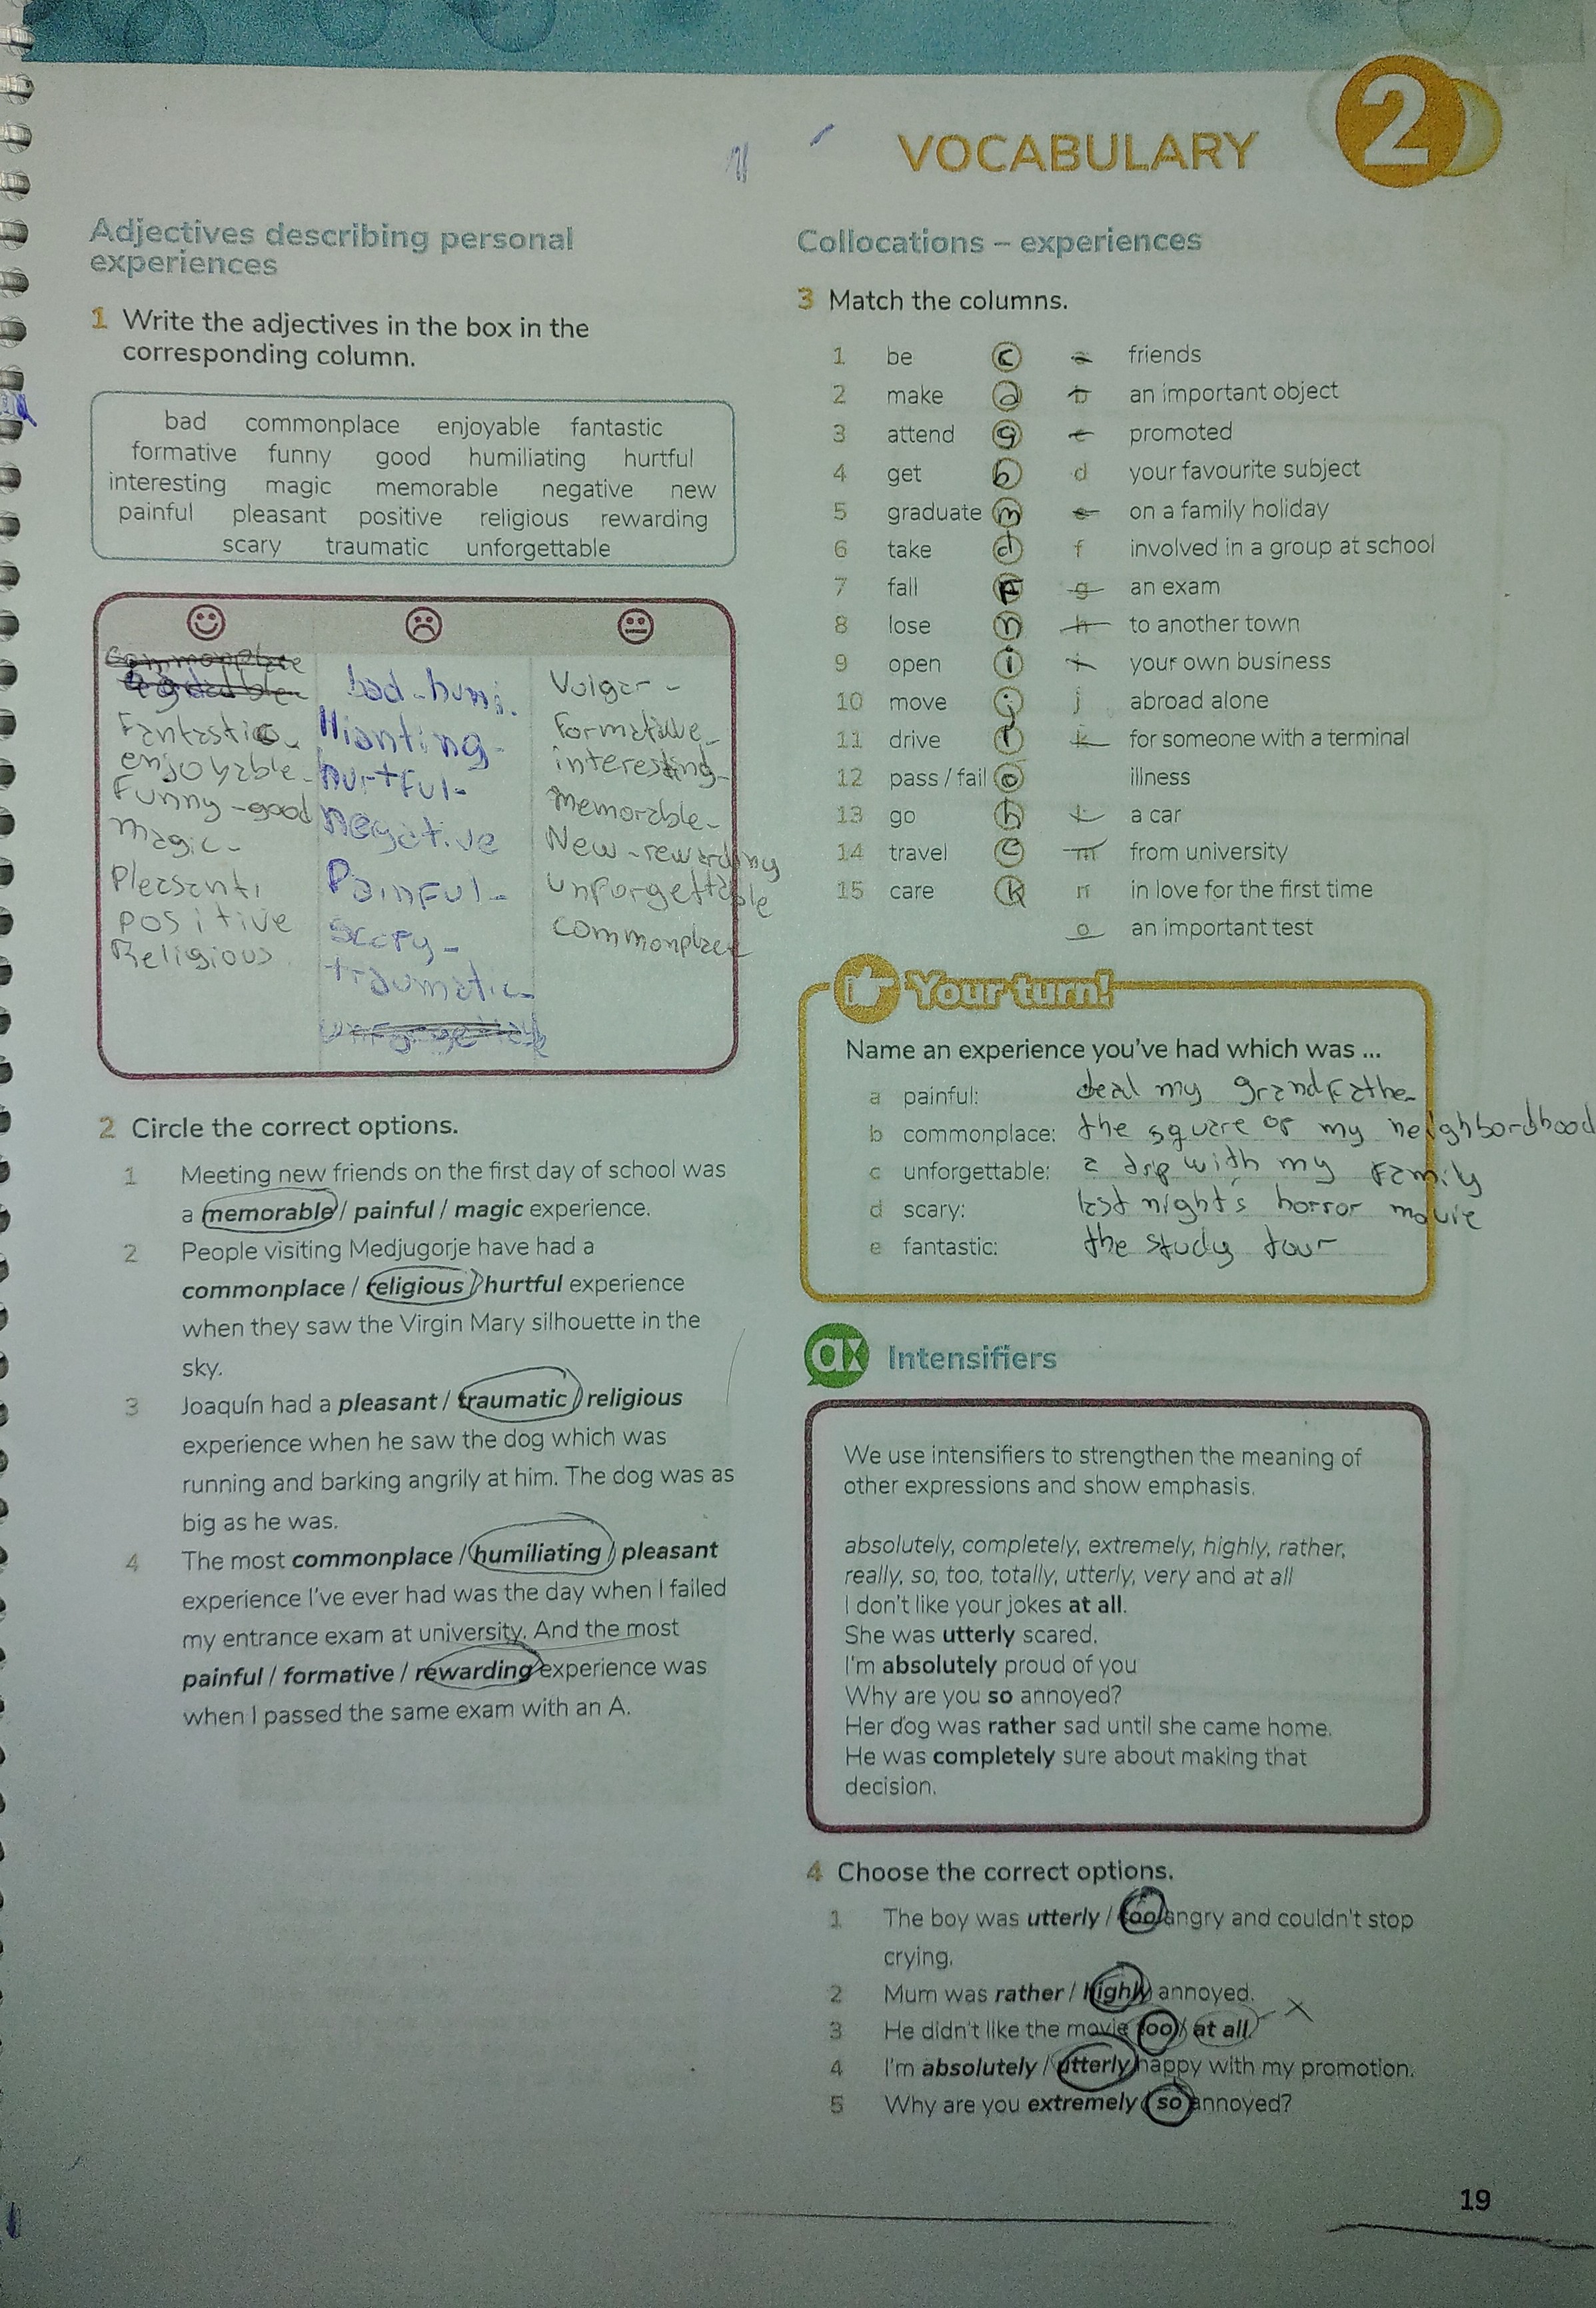 VOCABULARY 2
Adjectives describing personal
experiences
1 Write the adjectives in the box in the
corresponding column.
bad commonplace enjoyable fantastic
formative funny good humiliating hurtful
interesting magic memorable negative new
painful pleasant positive religious rewarding
scary traumatic unforgettable
Commonplace
Fantastic
enjoyable
Funny - good
magic -
Pleasant
positive
Religious
bad - humi
llianting -
hurtful -
negative
Painful -
Scary -
traumatic -
Vulgar -
formative -
interesting -
Memorable -
New - rewarding
unforgettable
commonplace
2 Circle the correct options.
1 Meeting new friends on the first day of school was
a memorable / painful / magic experience.
2 People visiting Medjugorje have had a
commonplace / religious / hurtful experience
when they saw the Virgin Mary silhouette in the
sky.
3 Joaquín had a pleasant / traumatic / religious
experience when he saw the dog which was
running and barking angrily at him. The dog was as
big as he was.
4 The most commonplace / humiliating / pleasant
experience I've ever had was the day when I failed
my entrance exam at university. And the most
painful / formative / rewarding experience was
when I passed the same exam with an A.
Collocations – experiences
3 Match the columns.
1 be c a friends
2 make a b an important object
3 attend g c promoted
4 get b d your favourite subject
5 graduate m e on a family holiday
6 take d f involved in a group at school
7 fall F g an exam
8 lose n h to another town
9 open i i your own business
10 move j j abroad alone
11 drive k for someone with a terminal
12 pass / fail o illness
13 go h l a car
14 travel e m from university
15 care k n in love for the first time
o an important test
Your turn!
Name an experience you've had which was ...
a painful: deal my grandfather
b commonplace: the square of my neighbordhood
c unforgettable: a trip with my family
d scary: last night's horror movie
e fantastic: the study tour
ax Intensifiers
We use intensifiers to strengthen the meaning of
other expressions and show emphasis.
absolutely, completely, extremely, highly, rather,
really, so, too, totally, utterly, very and at all
I don't like your jokes at all.
She was utterly scared.
I'm absolutely proud of you
Why are you so annoyed?
Her dog was rather sad until she came home.
He was completely sure about making that
decision.
4 Choose the correct options.
1 The boy was utterly / too angry and couldn't stop
crying.
2 Mum was rather / highly annoyed.
3 He didn't like the movie too / at all. X
4 I'm absolutely / utterly happy with my promotion.
5 Why are you extremely / so annoyed?
19